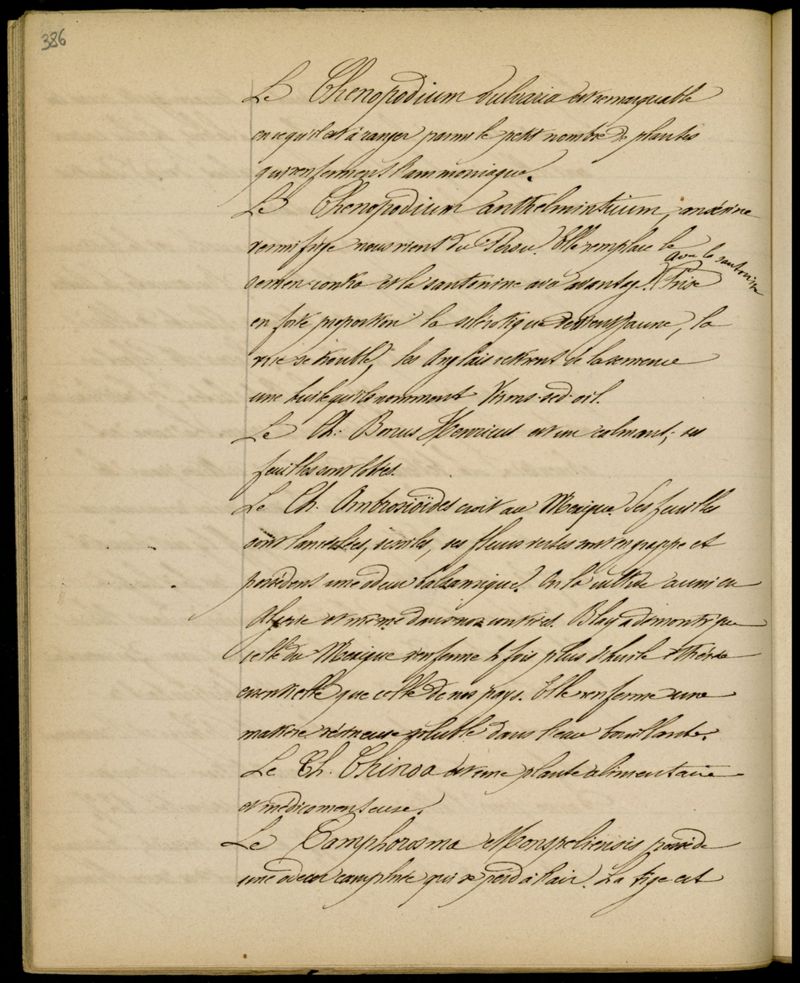 386
Le Chenopodium Vulvaria est remarquable
en ce qu'il est à ranger parmi le petit nombre de plantes
qui renferment l'ammoniaque.
Le Chenopodium anthelminticum, ansérine
vermifuge nous vient du Pérou. Elle remplace le
avec la santonine
semen contra et la santonine avec avantage. Prise
en forte proportion la sclérotique devient jaune, la
vue se trouble, les Anglais retirent de la semence
une huile qu'ils nomment Worms-seed-oil.
Le Ch. Bonus Henricus est un calmant; ses
feuilles sont lobées.
Le Ch. Ambrosioïdes croit au Mexique. Ses feuilles
sont lancéolées, sessiles, ses fleurs vertes sont en grappe et
possèdent une odeur balsamique. On la cultive aussi en
Algérie et même dans nos contrées. Bley a démontré que
celle du Mexique renferme 4 fois plus d'huile éthérée
essentielle que celle de nos pays. Elle renferme une
matière résineuse soluble dans l'eau bouillante.
Le Ch. Chinoa est une plante alimentaire
et médicamenteuse.
Le Camphorosma Monspeliensis possède
une odeur camphrée qui se perd à l'air. La tige est